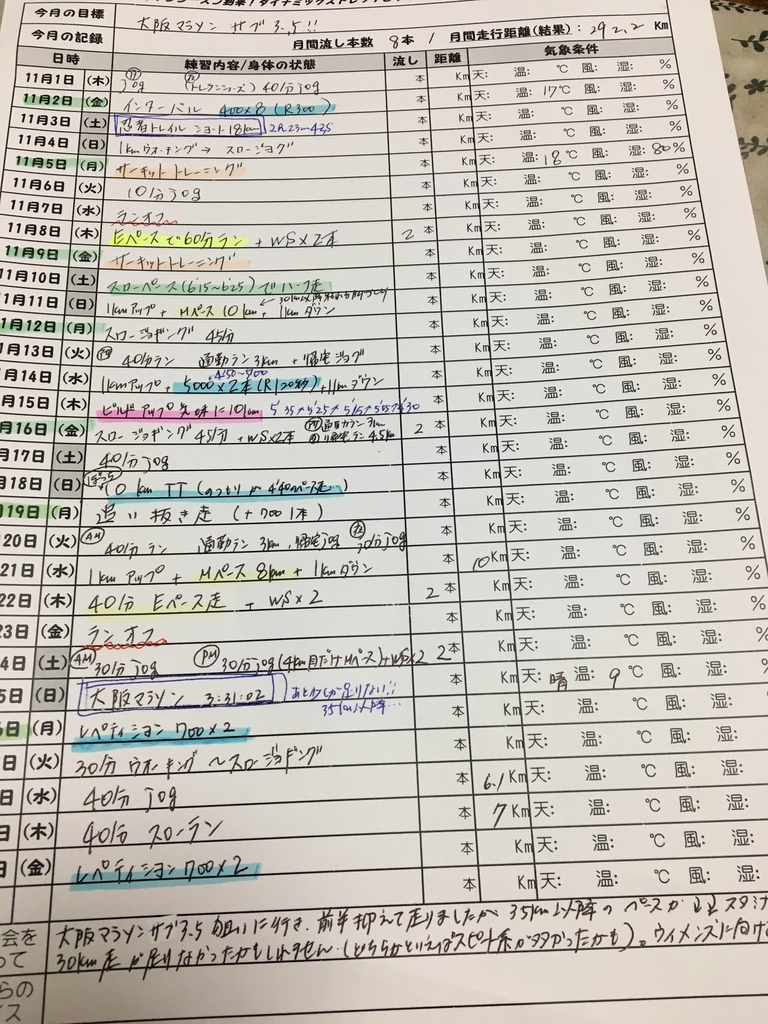 今月の目標 大阪マラソン サブ3.5!!
今月の記録 月間流し本数 8本 / 月間走行距離(結果): 292.2 Km
日時 練習内容/身体の状態 流し 距離 気象条件
11月1日 (木) jog (トレランシューズ) 40分jog 本 Km 天: 温: 17℃ 風: 湿: %
11月2日 (金) インターバル 400×8 (R300) 本 Km 天: 温: ℃ 風: 湿: %
11月3日 (土) 忍者トレイル ショート18km 2R23m42S 本 Km 天: 温: ℃ 風: 湿: %
11月4日 (日) 1kmウォーキング→スロージョグ 本 Km 天: 温: ℃ 風: 湿: %
11月5日 (月) サーキットトレーニング 本 Km 天: 温: 18℃ 風: 湿: 80%
11月6日 (火) 10分jog 本 Km 天: 温: ℃ 風: 湿: %
11月7日 (水) ランオフ 本 Km 天: 温: ℃ 風: 湿: %
11月8日 (木) Eペースで60分ラン + WS×2本 2本 Km 天: 温: ℃ 風: 湿: %
11月9日 (金) サーキットトレーニング 本 Km 天: 温: ℃ 風: 湿: %
11月10日 (土) スローペース(6'15~6'25)でハーフ走 本 Km 天: 温: ℃ 風: 湿: %
11月11日 (日) 1kmアップ + Mペース10km + 1kmダウン 本 Km 天: 温: ℃ 風: 湿: %
1月12日 (月) スロージョギング 45分 本 Km 天: 温: ℃ 風: 湿: %
1月13日 (火) 40分ラン 通勤ラン3km + 帰宅ジョグ 本 Km 天: 温: ℃ 風: 湿: %
月14日 (水) 1kmアップ + 5000×2本(R120秒) + 1kmダウン 4'50~5'00 本 Km 天: 温: ℃ 風: 湿: %
月15日 (木) ビルドアップ気味に10km 5'35 5'25 5'15 5'05 4'30 本 Km 天: 温: ℃ 風: 湿: %
月16日 (金) スロージョギング 45分 + WS×2本 通勤ラン3km 帰宅ラン4.5km 2本 Km 天: 温: ℃ 風: 湿: %
月17日 (土) 40分jog 本 Km 天: 温: ℃ 風: 湿: %
月18日 (日) 10km TT 4'40ペース走) 本 Km 天: 温: ℃ 風: 湿: %
月19日 (月) 追い抜き走 (+700 1本) 本 Km 天: 温: ℃ 風: 湿: %
20日 (火) AM 40分ラン 通勤ラン3km 帰宅jog 30分jog 本 Km 天: 温: ℃ 風: 湿: %
21日 (水) 1kmアップ + Mペース8km + 1kmダウン 本 10Km 天: 温: ℃ 風: 湿: %
22日 (木) 40分 Eペース走 + WS×2 2本 Km 天: 温: ℃ 風: 湿: %
23日 (金) ランオフ 本 Km 天: 温: ℃ 風: 湿: %
4日 (土) AM 30分jog PM 30分jog(4km目だけMペース)+WS×2 2本 Km 天: 温: ℃ 風: 湿: %
5日 (日) 大阪マラソン 3:31:02 あと少し足りない!! 35km以降… 本 Km 天: 晴 温: 9℃ 風: 湿: %
6日 (月) レペティション 700×2 本 Km 天: 温: ℃ 風: 湿: %
日 (火) 30分 ウォーキング ~スロージョギング 本 Km 天: 温: ℃ 風: 湿:
日 (水) 40分 jog 本 6.1Km 天: 温: ℃ 風: 湿:
日 (木) 40分 スローラン 本 7Km 天: 温: ℃ 風: 湿:
日 (金) レペティション 700×2 本 Km 天: 温: ℃ 風: 湿:
会を 大阪マラソン サブ3.5狙いに行き、前半抑えて走りましたが 35km以降のペースが↓↓ スタミ
って 30km走が足りなかったかもしれません。(どちらかといえばスピード系が多かったかも)。ウィメンズに向け
らの
イス